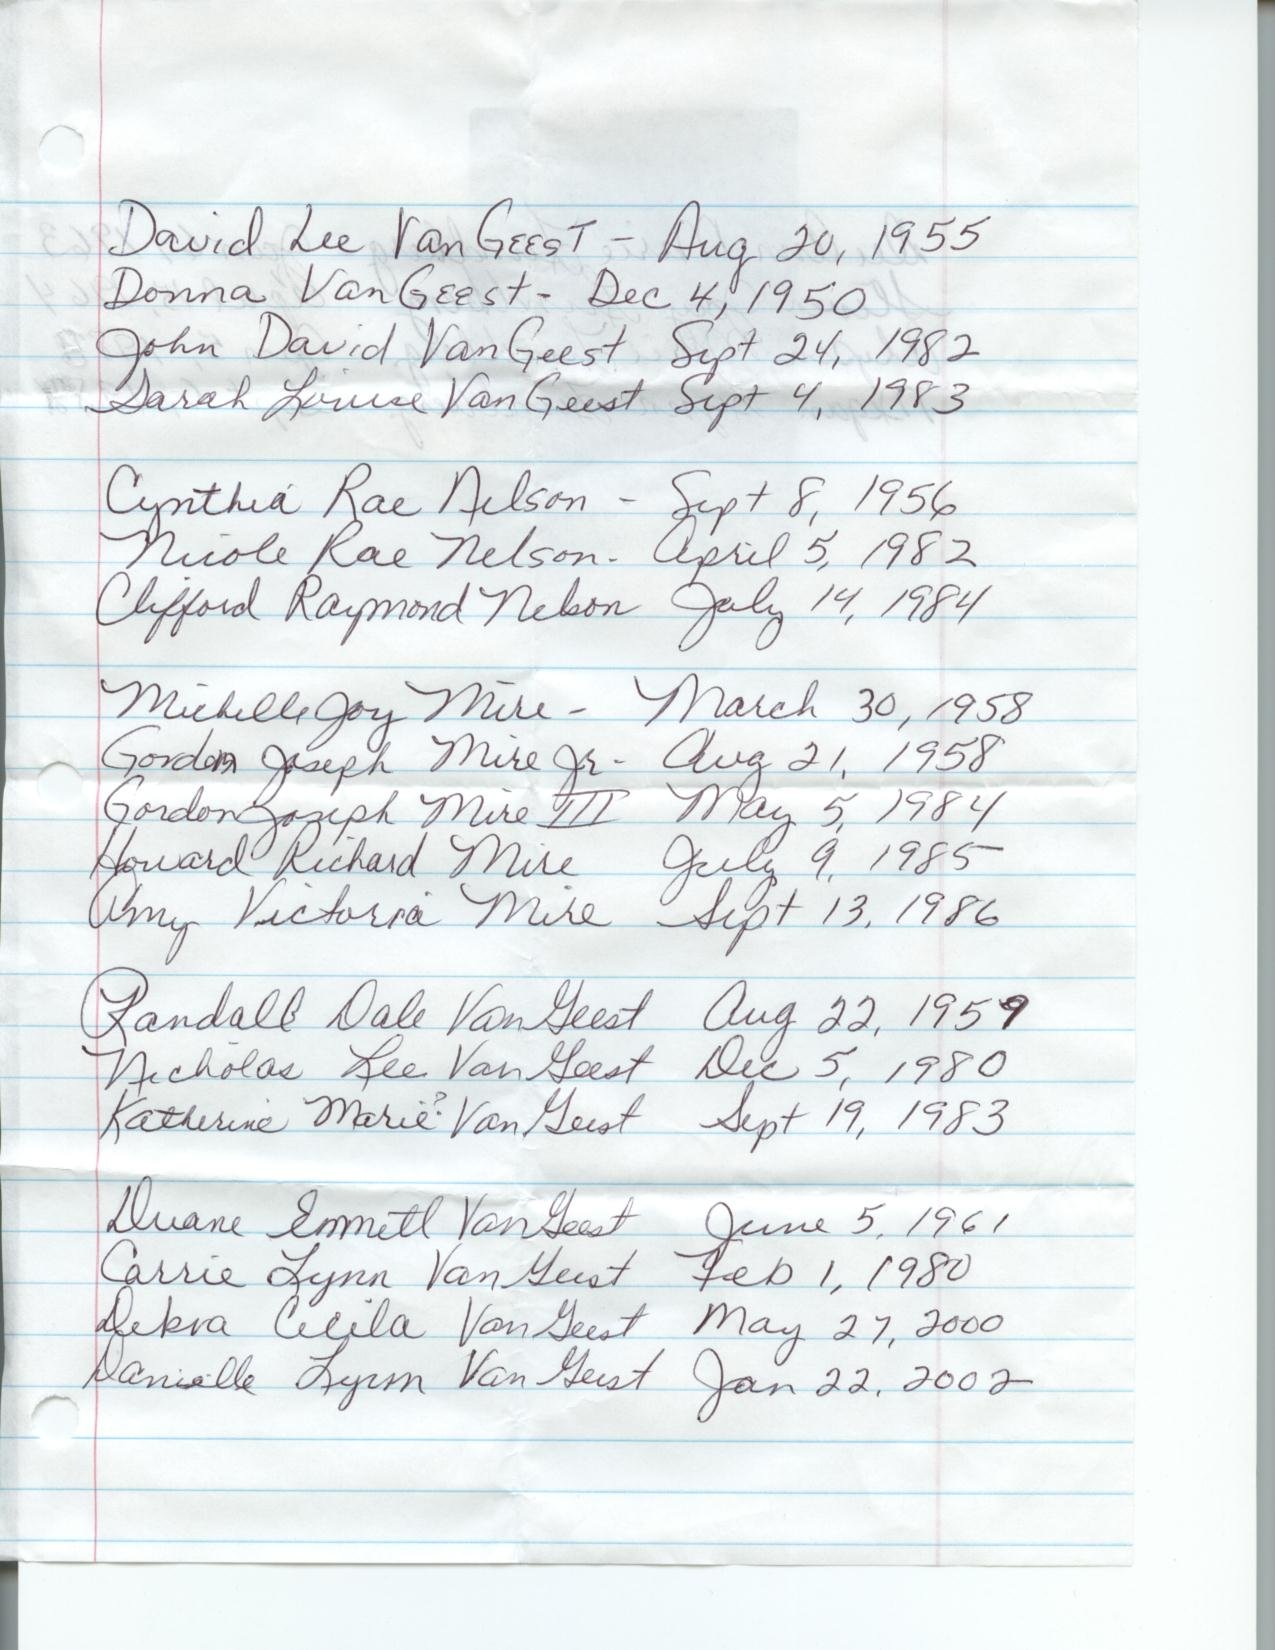 David Lee VanGeest - Aug 20, 1955
Donna VanGeest - Dec 4, 1950
John David VanGeest Sept 24, 1982
Sarah Louise VanGeest Sept 4, 1983
Cynthia Rae Nelson - Sept 8, 1956
Nicole Rae Nelson - April 5, 1982
Clifford Raymond Nelson July 14, 1984
Michelle Joy Mire - March 30, 1958
Gordon Joseph Mire Jr - Aug 21, 1958
Gordon Joseph Mire III May 5, 1984
Howard Richard Mire July 9, 1985
Amy Victoria Mire Sept 13, 1986
Randall Dale VanGeest Aug 22, 1959
Nicholas Lee VanGeest Dec 5, 1980
Katherine Marie? VanGeest Sept 19, 1983
Duane Emmett VanGeest June 5, 1961
Carrie Lynn VanGeest Feb 1, 1980
Debra Cecila VanGeest May 27, 2000
Danielle Lynn VanGeest Jan 22, 2002